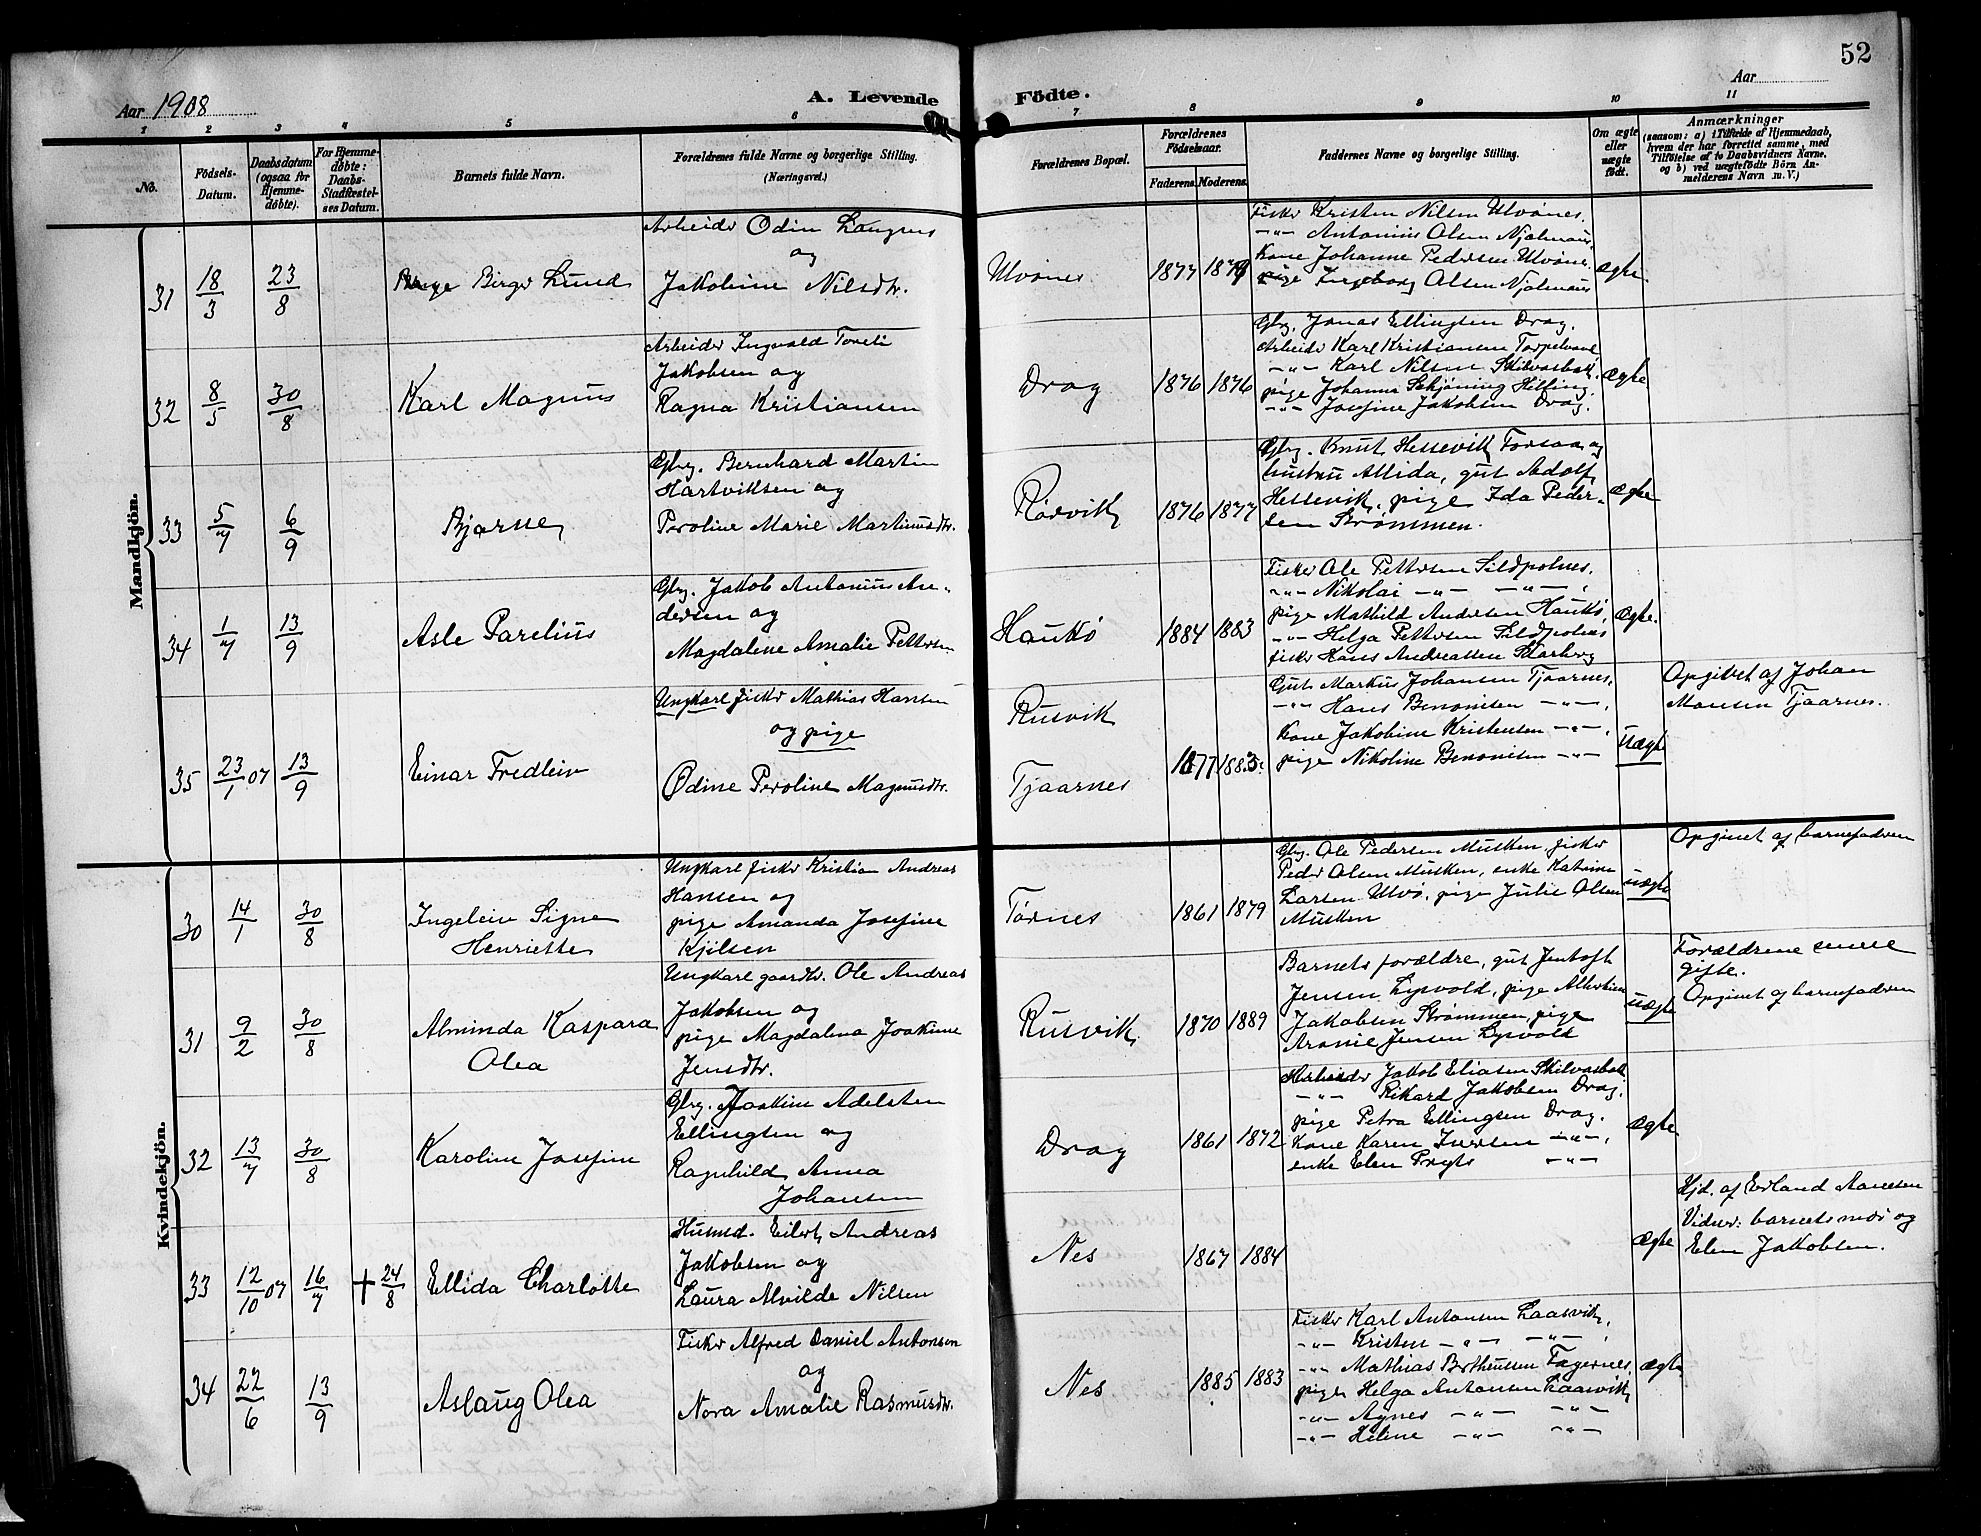 52
Aar 1908
A. Levende Födte.
Aar
1 2 3 4 5 6 7 8 9 10 11
No.
Födsels-Datum.
Daabsdatum (ogsaa for Hjemme-døbte).
For Hjemme-döbte: Daabs-Stadfæstel-ses Datum.
Barnets fulde Navn.
Forældrenes fulde Navne og borgerlige Stilling.
(Næringsvei.)
Forældrenes Bopæl.
Forældrenes Födselsaar.
Faderens. Moderens.
Faddernes Navne og borgerlige Stilling.
Om ægte eller uægte födt.
Anmærkninger
(saasom: a) i Tilfælde af Hjemmedaab,
hvem der har forrettet samme, med
Tilföielse af to Daabsvidners Navne,
og b) ved uægtefödte Börn An-
melderens Navn m. V.)
Mandkjön.
31 18/3 23/8 Birger Lund
Arbeider Odin
og
Jakobine Nilsdtr.
Ulvönes 1877
Fisker Kristen Nilsen Ulvönes.
-"- Antonius Olsen
Kone Johanne Pedersen Ulvönes.
pige Ingeborg Olsen
Ægte.
32 8/5 30/8 Karl Magnus
Arbeider Ingvald
Jakobsen og
Ragna Kristiansen
Drag 1876 1876
Gbrg. Jonas Ellingsen Drag.
Arbeider Karl Kristiansen
-"- Karl Nilsen Skilvasbak
pige Johanna Schjöning Hilling.
-"- Josefine Jakobsen Drag.
Ægte
33 5/7 6/9 Bjarne
Gbrg. Bernhard Martin
Hartviksen og
Peroline Marie Martinusdtr.
Rörvik 1876 1877
Gbrg. Knut Hessevik Forsaa og
hustru Allida, gut Adolf
Hessevik, pige Ida Peder-
sen Strömmen.
Ægte
34 1/7 13/9 Asle Parelius
Gbrg. Jakob Antonius An-
dersen og
Magdalene Amalie Pettersen
Haukö 1884 1883
Fisker Ole Pettersen Sildpolnes.
-"- Nikolai -"- -"-
pige Mathild Andersen Haukö,
-"- Helga Pettersen Sildpolnes
fisker Hans Andreassen Skarberg
Ægte.
35 23/1 07 13/9 Einar Fredlein
Ungkarl fisker Mathias Hansen
og pige
Ödine Peroline Magnusdtr.
Rusvik
Tjaarnes 1877 1883
Gut Markus Johansen Tjaarnes.
-"- Hans Benonisen -"-
Kone Jakobine Kristensen -"-
pige Nikoline Benonisen -"-
Uægte
Opgivet af Johan
Monsen Tjaarnes.
Kvindekjön.
30 14/1 30/8 Ingelein Signe
Henriette
Ungkarl fisker Kristian Andreas
Hansen og
pige Amanda Josefine
Kjilsen
Tørnes 1861 1879
Gbrg. Ole Pedersen Musken, fisker
Peder Olsen Musken, enke Katrine
Larsen Ulvö, pige Julie Olsen
Musken
uægte
Opgivet af barnefaderen
31 9/2 30/8 Alminda Kaspara
Olea
Ungkarl gaardbr. Ole Andreas
Jakobsen og
pige Magdalena Joakime
Jensdtr.
Rusvik 1870 1889
Barnets forældre, gut Jentoft
Jensen Lysvold, pige Albertine
Jakobsen Strømmen, pige
Aronie Jensen Lysvold
uægte
Forældrene senere
gifte.
Opgivet af barnefaderen
32 13/7 30/8 Karoline Josefine
Gbrg. Joakim Adelsten
Ellingsen og
Ragnhild Anna
Johansen
Drag 1861 1872
Arbeider Jakob Eliasen Skilvasbak
-"- Rikard Jakobsen Drag.
pige Petra Ellingsen Drag.
Kone Karen Iversen -"-
enke Elen Pryts -"-
Ægte
33 12/10 07 16/7 † 24/8 Ellida Charlotte
Husmd. Eilert Andreas
Jakobsen og
Laura Alvilde Nilsen
Nes 1867 1884
Ægte
Hjd. af Erland Aanesen
Vidner: barnets mor og
Elen Jakobsen.
34 22/6 13/9 Aslaug Olea
Fisker Alfred Daniel Antonsen
og
Nora Amalie Rasmusdtr.
Nes 1885 1883
Fisker Karl Antonsen Laasvik,
-"- Kristen -"- -"-
-"- Mathias Bertheussen Fagernes,
pige Helga Antonsen Laasvik
-"- Agnes -"- -"-
-"- Helene -"- -"-
Ægte